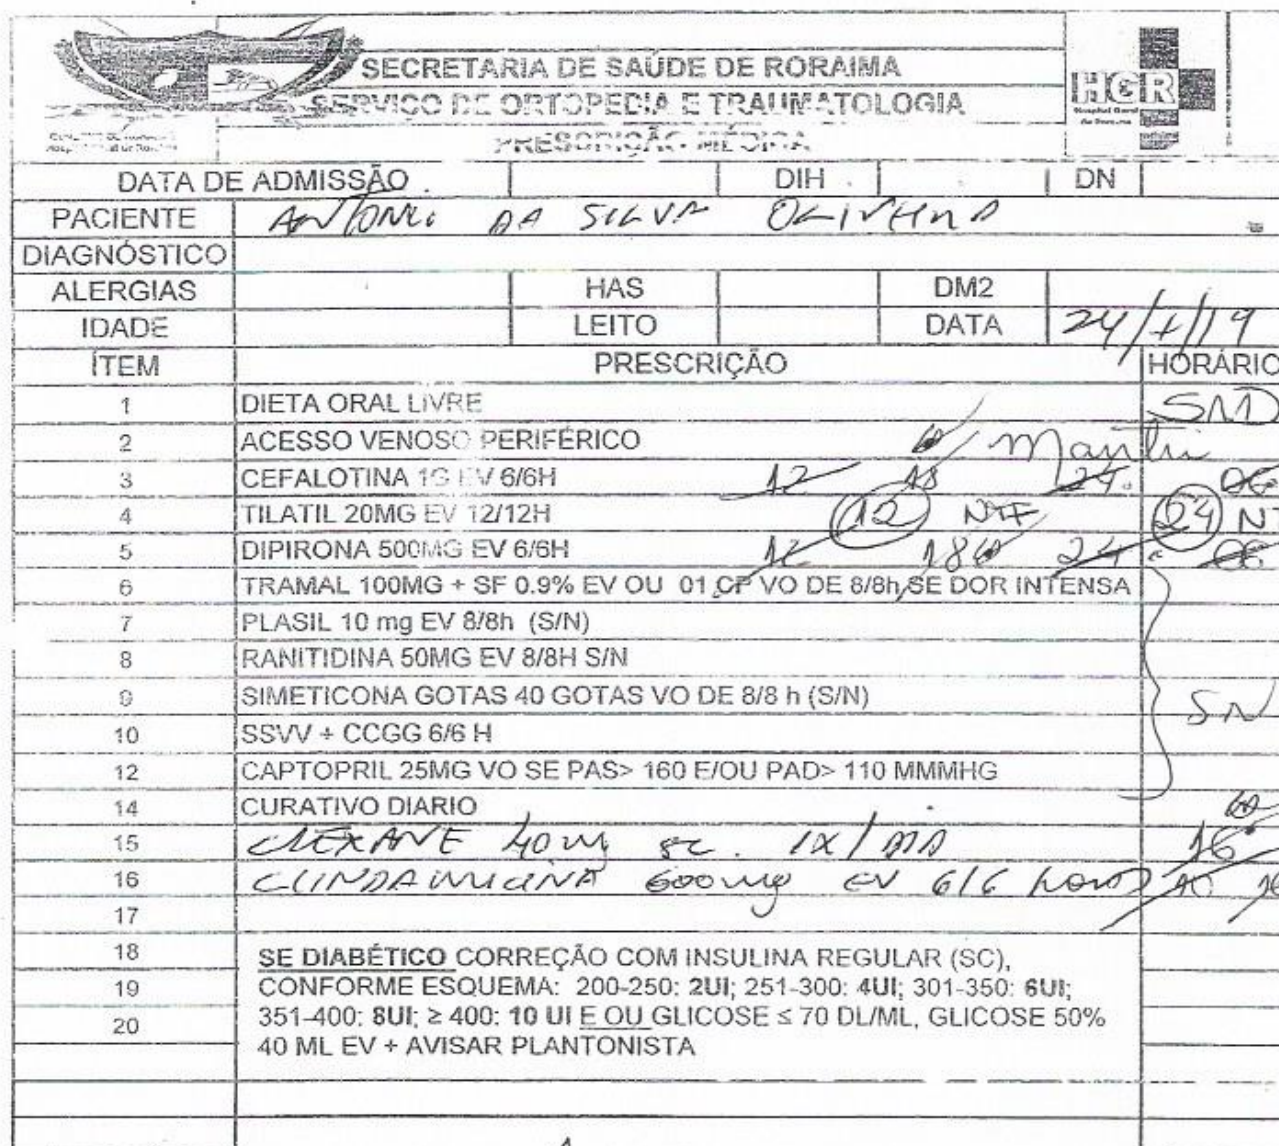 SECRETARIA DE SAÚDE DE RORAIMA
SERVIÇO DE ORTOPEDIA E TRAUMATOLOGIA
PRESCRIÇÃO MÉDICA
HGR
Hospital Geral
de Roraima
DATA DE ADMISSÃO DIH DN
PACIENTE ANTONIO DA SILVA OLIVEIRA
DIAGNÓSTICO
ALERGIAS HAS DM2
IDADE LEITO DATA 24/1/19
ÍTEM PRESCRIÇÃO HORÁRIO
1 DIETA ORAL LIVRE SND
2 ACESSO VENOSO PERIFÉRICO
3 CEFALOTINA 1G EV 6/6H 12 18 24 06
4 TILATIL 20MG EV 12/12H 12 24
5 DIPIRONA 500MG EV 6/6H 12 18 24 06
6 TRAMAL 100MG + SF 0.9% EV OU 01 CP VO DE 8/8h SE DOR INTENSA
7 PLASIL 10 mg EV 8/8h (S/N)
8 RANITIDINA 50MG EV 8/8H S/N
9 SIMETICONA GOTAS 40 GOTAS VO DE 8/8 h (S/N) SN
10 SSVV + CCGG 6/6 H
12 CAPTOPRIL 25MG VO SE PAS> 160 E/OU PAD> 110 MMMHG
14 CURATIVO DIARIO
15 CLEXANE 40mg SC. 1X/DIA 16
16 CLINDAMICINA 600mg EV 6/6 horas
17
18 SE DIABÉTICO CORREÇÃO COM INSULINA REGULAR (SC),
19 CONFORME ESQUEMA: 200-250: 2UI; 251-300: 4UI; 301-350: 6UI;
20 351-400: 8UI; ≥ 400: 10 UI E OU GLICOSE ≤ 70 DL/ML, GLICOSE 50%
40 ML EV + AVISAR PLANTONISTA